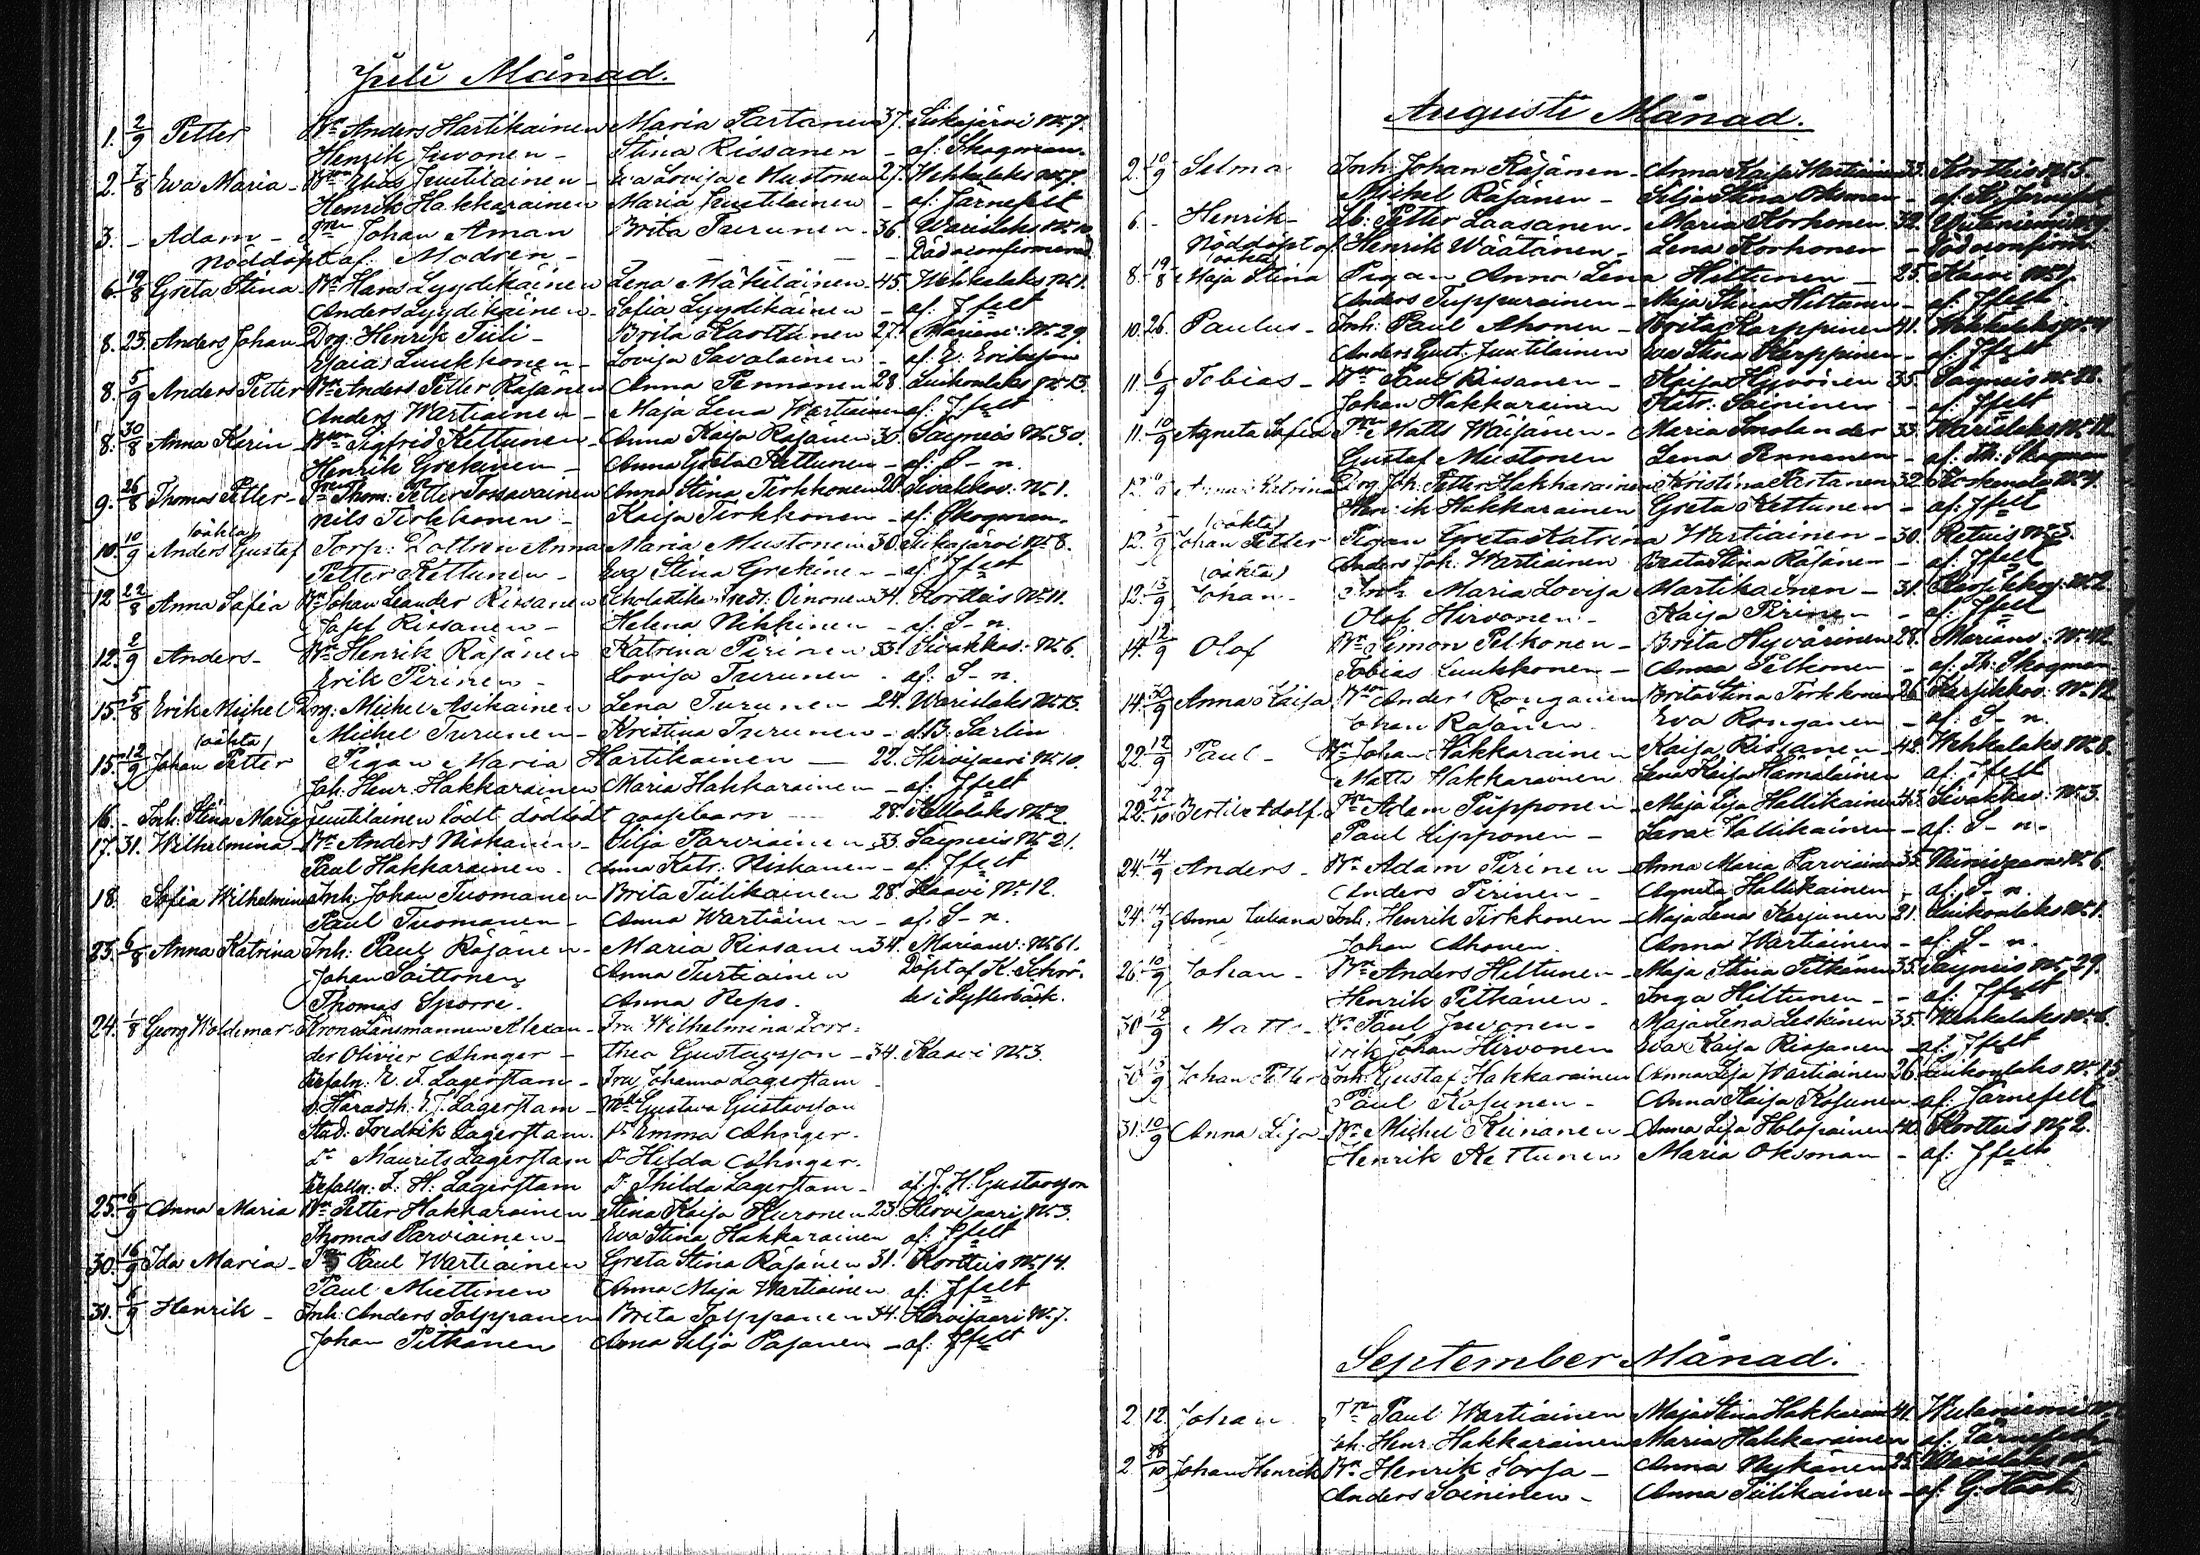 Juli Månad.
1. 2/9 Petter Bn Anders Hartikainen Maria Partanen 37. Siikajärvi No 7.
Henrik Juvonen - Stina Rissanen - af: Skogman.
2. 7/8 Eva Maria - Bon Elias Juutilainen - Eva Lovisa Mustonen 27. Wehkalaks No 7.
Henrik Hakkarainen Maria Juutilainen - af Järnefelt
3. - Adam - Johan Aman Brita Turunen - 36. Warislaks No
Nöddöpt af Modren - Död oconfirmerad
6. 19/8 Greta Stina Bn Hans Lyydikäinen Lena Mäkiläinen - 45. Wehkalaks No 1.
Anders Lyydikäinen - Sofia Lyydikäinen - af: Jfelt
8. 23. Anders Johan Drg. Henrik Tiili - Brita Karttunen 27. Marianv: No 29.
Esaias Luukkonen - Lovisa Savolainen - af. E. Eriksson
8. 5/9 Anders Petter Bn Anders Petter Räsänen Anna Pennanen 28. Luikonlaks No 13.
Anders Wartiainen - Maja Lena Wartiainen af: Jfelt
8. 30/8 Anna Karin Bon Sigfred Kettunen - Anna Kaisa Räsänen 30. Säyneis No 30.
Henrik Grekinen - Anna Greta Kettunen - af: S - n.
9. 26/8 Thomas Petter - Thom: Petter Tossavainen Anna Stina Tirkkonen 20. Sivakkav: No 1.
Nils Tirkkonen - Kaisa Tirkkonen - af. Skogman.
(oäkta)
10. 10/9 Anders Gustaf Torp: Dottren Anna Maria Mustonen 30. Siikajärvi No 8.
Petter Kettunen - Eva Stina Grekinen - af Jfelt
12. 22/8 Anna Sofia Bn Johan Leander Rissanen Scholastika Oinonen 34. Kortteis No 11.
Josef Rissanen - Helena Nikkinen - af. S - n.
12. 2/9 Anders - Bn Henrik Räsänen Katrina Pirinen 33. Sivakkav: No 6.
Erik Pirinen - Lovisa Turunen - af. S - n.
15. 5/8 Erik Michel Drg: Michel Asikainen Lena Turunen 24. Warislaks No 13.
Michel Turunen - Kristina Turunen - af B. Sarlin
(oäkta)
15. 12/9 Johan Petter Pigan Maria Hartikainen - 22. Hirvisaari No 10.
Joh: Henr. Hakkarainen Maria Hakkarainen - af: Jfelt
16. - Inh: Stina Maria Juutilainen födt dödfödt gossebarn 28. Kellolaks No 2.
17. 31. Wilhelmina - Bn Anders Niskanen - Silja Parviainen 33. Säyneis No 21.
Paul Hakkarainen. Anna Katr: Niskanen - af: Jfelt
18. Sofia Wilhelmina Inh: Johan Tuomanen Brita Tiilikainen 28. Kaavi No 12.
Paul Tuomanen - Anna Wartiainen - af. S - n.
23. 6/8 Anna Katrina Inh: Paul Räsänen - Maria Rissanen 34. Marianv: No 61.
Johan Soittonen Anna Turtiainen Döpt af K. Schrö-
Thomas Sporre. Anna Reps. der i Systerbäck.
24. 1/8 Georg Woldemar Kronolänsmannen Alexan- Fru Wilhelmina Doro-
der Olivier Ahnger - thea Gustafsson - 34. Kaavi No 3.
E. F. Lagerstam - Fru Johanna Lagerstam -
Häradsh: Lagerstam - Mlle Gustava Gustavsson
Stud: Fredrik Lagerstam. Do Emma Ahnger.
Do Maurits Lagerstam Do Hilda Ahnger.
H: Lagerstam Do Thilda Lagerstam - af J. H. Gustavsson
25. 6/9 Anna Maria Bn Petter Hakkarainen Stina Kaisa Huronen 23. Hirvisaari No 3.
Thomas Parviainen - Eva Stina Hakkarainen af: Jfelt
30. 16/9 Ida Maria - Paul Wartiainen Greta Stina Räsänen 31. Kortteis No 14.
Paul Miettinen Anna Maja Wartiainen af: Jfelt
31. 6/9 Henrik - Inh: Anders Tolppanen Brita Tolppanen 34. Hirvisaari No 7.
Johan Pitkänen Anna Silja Pasanen - af: Jfelt
Augusti Månad.
2. 10/9 Selma Inh: Johan Räsänen - Anna Kaisa Wartiainen 33. Kortteis No 5.
Michel Räsänen - Silja Stina Oksman - af. Järnefelt
6. - Henrik - Petter Laasanen - Maria Korhonen 32.
Nöddöpt af Henrik Wäätänen - Lena Korhonen - Död oconfirm:
(oäkta)
8. 19/8 Maja Stina Pigan Anna Lena Hiltunen - 25. Kaavi No
Anders Tuppurainen - Maja Stina Hiltunen - af: Jfelt
10. 26. Paulus - Inh: Paul Ahonen - Brita Karppinen 41. Wehkalaks No
Anders Gust: Juutilainen Eva Stina Karppinen - af: Jfelt
11. 6/9 Tobias - Paul Rissanen - Kaisa Hyvönen 35. Säyneis No
Johan Hakkarainen Katr: Soininen - af: Jfelt
11. 10/9 Agneta Sofia Matts Wäisänen - Maria Smolander 33. Warislaks No
Gustaf Mustonen Lena Pennanen - af: Th: Skogman
12. Anna Katrina Drg. Joh: Petter Hakkarainen Kristina Kertanen 32. Koskenala No
Henrik Hakkarainen Greta Kettunen - af: Jfelt
(oäkta)
12. 5/9 Johan Petter Pigan Greta Katrina Wartiainen - 30. Retuis No 3.
Anders Joh: Wartiainen Brata Stina Räsänen - af: Jfelt
(oäkta)
12. 13/9 Johan - Inh: Maria Lovisa Martikainen - 31. No 2.
Olof Hirvonen - Kaisa Pirinen - af: Jfelt
14. 12/9 Olof Bn Simon Pelkonen - Brita Hyvärinen 28. Marianv: No 42.
Tobias Luukkonen - Anna Pelkonen - af: Th: Skogman
14. 30/9 Anna Kaisa Anders Ronganen Brita Stina Tirkkonen 26. No 12.
Johan Räsänen Eva Ronganen - af: S - n.
22. 12/9 Paul - Bn Johan Hakkarainen Kaisa Rissanen - 42. Wehkalaks No 8.
Matts Hakkarainen Lena Kaisa Hämäläinen af: Jfelt
22. 27/10 Bertil Adolf. Adam Pupponen - Maja Lisa Hallikainen 43. Sivakkav: No 3.
Paul Lipponen - Sara Hallikainen - af: S - n.
24. 14/9 Anders - Bn Adam Pirinen - Anna Maria Parviainen 35. Niinivaara No 6.
Anders Pirinen - Agneta Hallikainen - af: S - n.
24. 14/9 Anna Juliana Inh: Henrik Tirkkonen - Maja Lena Karjunen 21. Luikonlaks No 1.
Johan Ahonen. Anna Wartiainen - af: S - n.
26. 10/9 Johan - Bn Anders Hiltunen - Maja Stina Pitkänen 35. Säyneis No 29.
Henrik Pitkänen - Inga Hiltunen - - af: Jfelt
30. 12/9 Matts - Paul Juvonen - Maja Lena Leskinen 35. Wehkalaks No 6.
Erik Johan Hirvonen Eva Kaisa Rissanen - af: Jfelt
30. 13/9 Johan Petter Inh: Gustaf Hakkarainen Anna Lisa Wartiainen 26. Luikonlaks No 13
Paul Kosunen - Anna Kaisa Kosunen - af: Järnefelt
31. 10/9 Anna Lisa Bn Michel Keinanen - Anna Lisa Holopainen 40. Kortteis No 2.
Henrik Kettunen Maria Oksman - af: Jfelt
September Månad.
2. 12. Johan Paul Wartiainen Maja Stina Hakkarain 41.
Joh: Henr. Hakkarainen Maria Hakkarainen af. Järnefelt
2. Johan Henrik Bn Henrik Sorsa - Anna Nykänen 25. Warislaks
Anders Soininen - Anna Tiilikainen - af: G. Höök